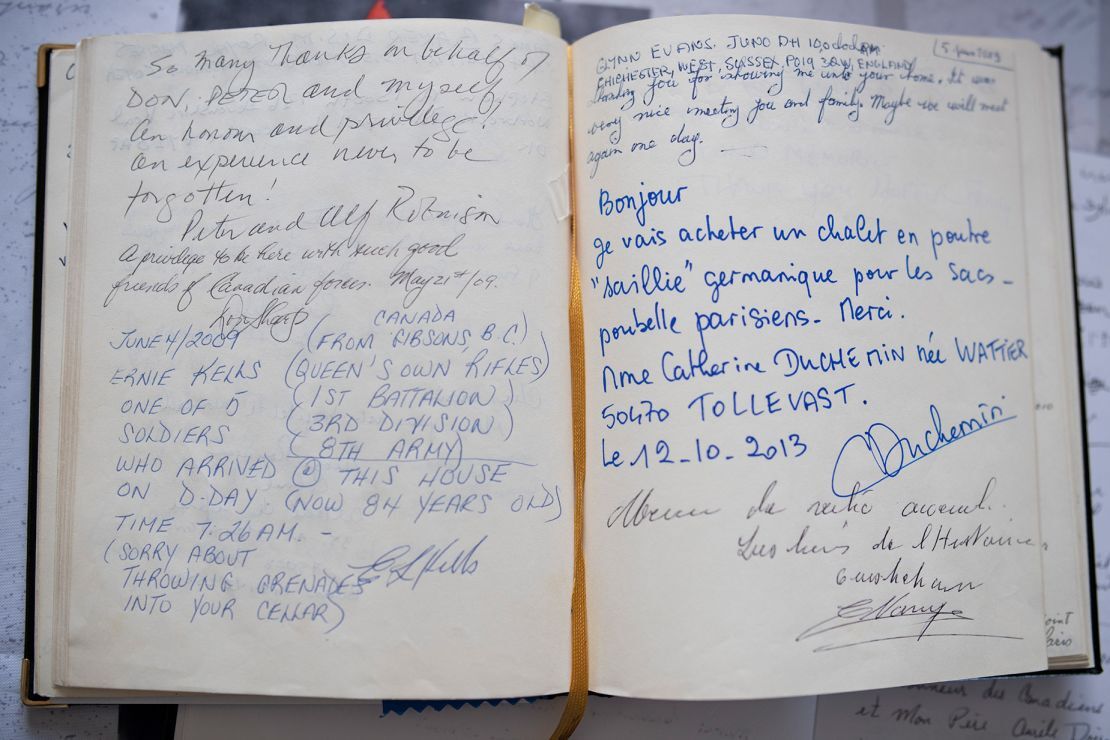 So many Thanks on behalf of
DON, PETER and myself,
An honour and privilege.
an experience never to be
forgotten!
Peter and Alf Robinson
A privilege to be here with such good
friends of Canadian forces. May 21st/09.
JUNE 4/2009 (CANADA
(FROM GIBSONS B.C.)
ERNIE KELLS (QUEEN'S OWN RIFLES)
ONE OF 5 (1ST BATTALION)
SOLDIERS (3RD DIVISION)
(8TH ARMY)
WHO ARRIVED @ THIS HOUSE
ON D-DAY. (NOW 84 YEARS OLD)
TIME 7:26 AM. -
(SORRY ABOUT
THROWING GRENADES
INTO YOUR CELLAR)
E L Kells
5 juin 2009
GLYNN EVANS. JUNO DH
CHICHESTER, WEST SUSSEX, PO19 3QW, ENGLAND
thanking you for showing me into your home. It was
very nice meeting you and family. Maybe we will meet
again one day.
Bonjour
Je vais acheter un chalet en poutre
"saillie" germanique pour les sacs-
poubelle parisiens. Merci.
Mme Catherine DUCHEMIN née WATTIER
50470 TOLLEVAST.
Le 12-10-2013
CDuchemin
de accueil.
de l'Histoire
Canadiens
et Mon Père